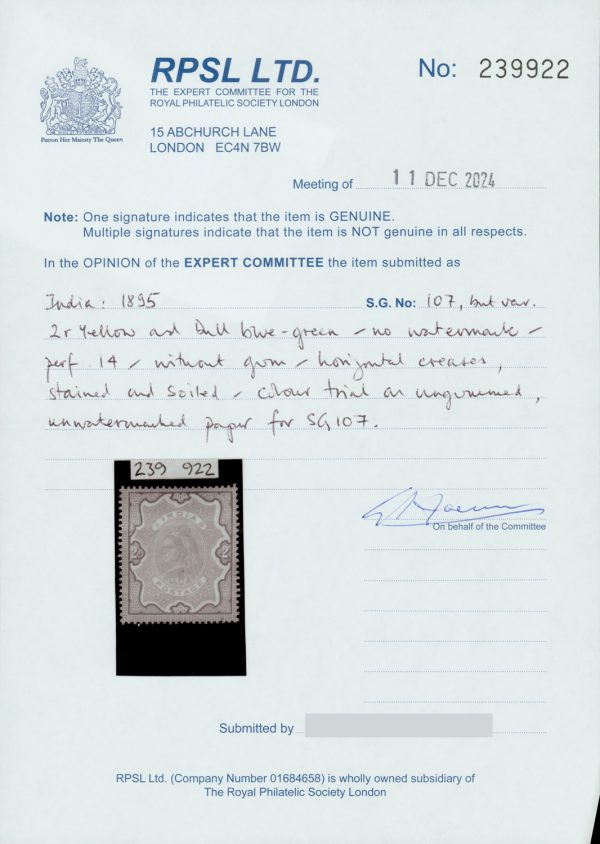 RPSL LTD.
THE EXPERT COMMITTEE FOR THE
ROYAL PHILATELIC SOCIETY LONDON
15 ABCHURCH LANE
LONDON EC4N 7BW
Patron Her Majesty The Queen
No: 239922
Meeting of 11 DEC 2024
Note: One signature indicates that the item is GENUINE.
Multiple signatures indicate that the item is NOT genuine in all respects.
In the OPINION of the EXPERT COMMITTEE the item submitted as
India: 1895 S.G. No: 107, but var.
2r Yellow and Dull blue-green - no watermark -
perf. 14 - without gum - horizontal creases,
stained and soiled - colour trial on ungummed,
unwatermarked paper for SG107.
239 922
INDIA
2 2
POSTAGE
On behalf of the Committee
Submitted by
RPSL Ltd. (Company Number 01684658) is wholly owned subsidiary of
The Royal Philatelic Society London